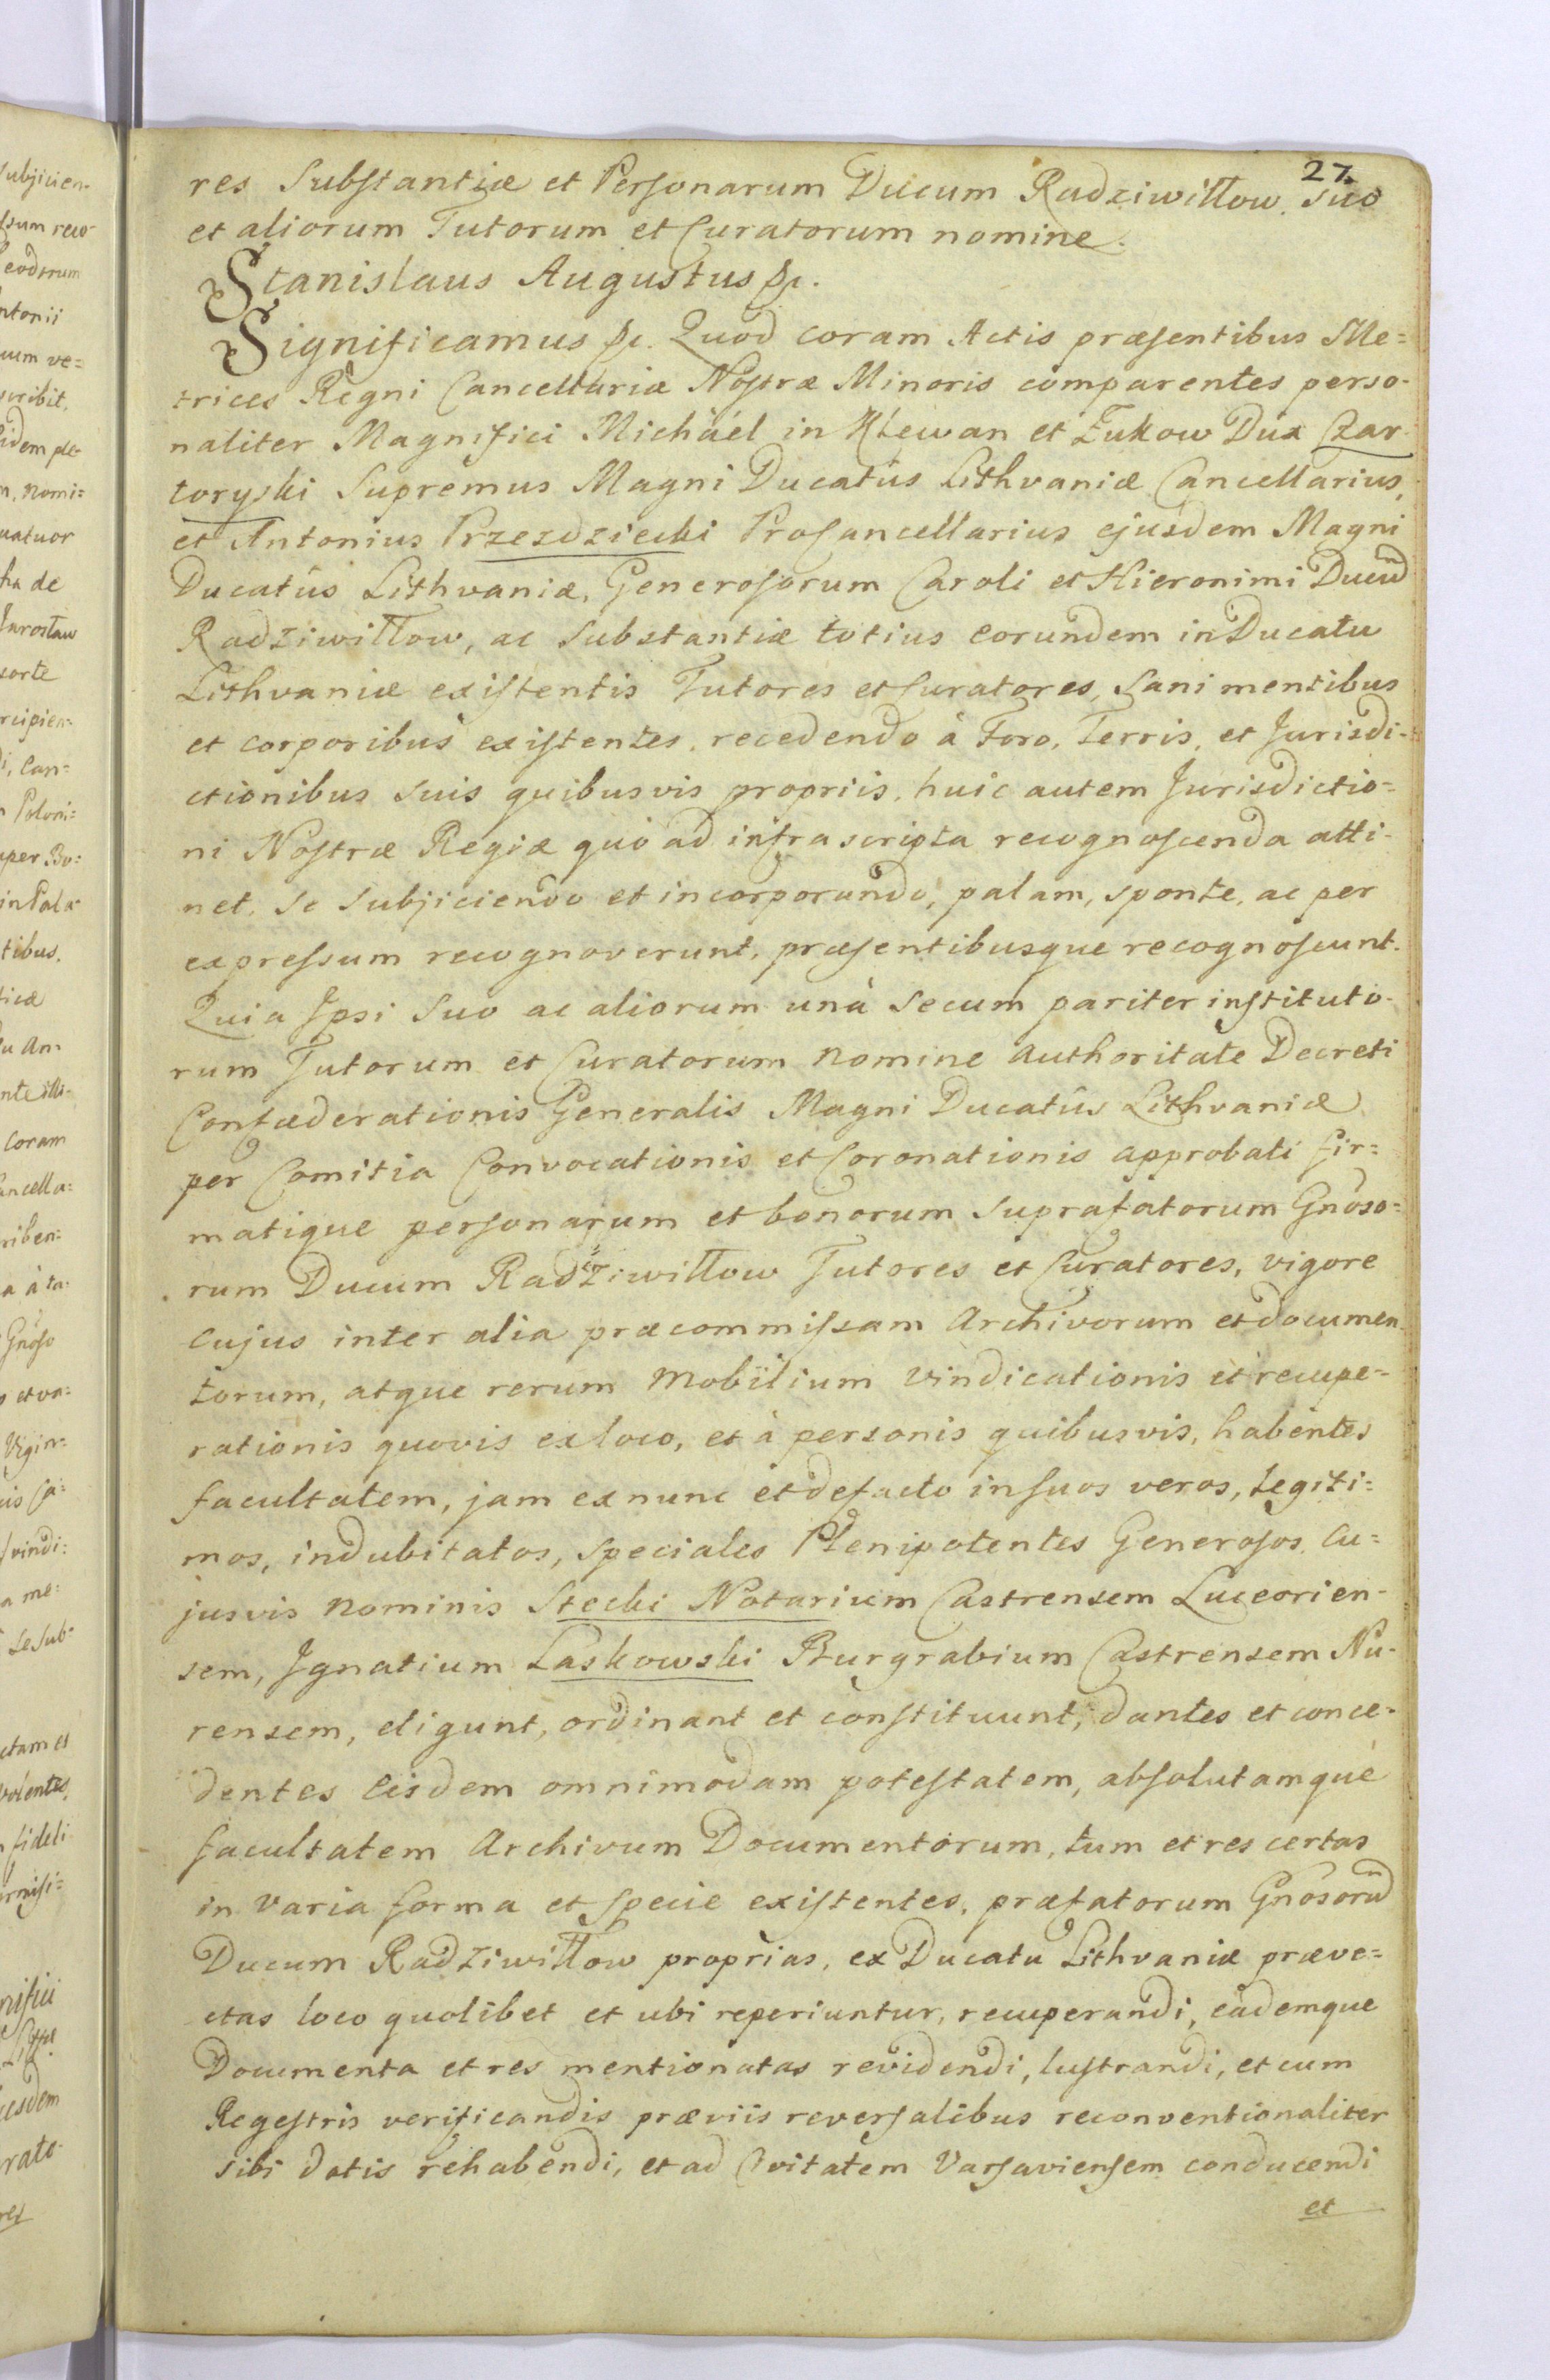 27.
res Substantiæ et Personarum Ducum Radziwiłłow. suo
et aliorum Tutorum et Curatorum nomine.
Stanislaus Augustus &c.
Significamus &c. Quod coram Actis præsentibus Me=
trices Regni Cancellariæ Nostræ Minoris comparentes perso-
naliter Magnifici Michaél in Klewan et Żukow Dux Czar-
toryski Supremus Magni Ducatûs Lithvaniæ Cancellarius,
et Antonius Przezdziecki ProCancellarius ejusdem Magni
Ducatûs Lithvaniæ, Generosorum Caroli et Hieronimi Ducũ
Radziwiłłow, ac Substantiæ totius eorundem in Ducatu
Lithvaniæ existentis Tutores et Curatores, Sani mentibus
et corporibus existentes, recedendo à Foro, Terris, et Jurisdi-
ctionibus suis quibusvis propriis, huic autem Jurisdictio=
ni Nostræ Regiæ quò ad infrascripta recognoscenda atti-
net, se subjiciendo et incorporando, palam, sponte, ac per
expressum recognoverunt, præsentibusque recognoscunt.
Quia Ipsi Suo ac aliorum unà secum pariter instituto-
rum Tutorum et Curatorum nomine authoritate Decreti
Confæderationis Generalis Magni Ducatûs Lithvaniæ
per Comitia Convocationis et Coronationis approbati fir=
matique personarum et bonorum suprafatorum Gnoso=
rum Ducum Radziwiłłow Tutores et Curatores, vigore
cujus inter alia præcommissam Archivorum et documen-
torum, atque rerum mobilium vindicationis et recupe-
rationis quovis ex loco, et à personis quibusvis, habentes
facultatem, jam ex nunc et de facto in suos veros, legiti=
mos, indubitatos, speciales Plenipotentes Generosos. Cu=
jusvis nominis Stecki Notarium Castrensem Luceorien-
sem, Ignatium Laskowski Burgrabium Castrensem Nu-
rensem, eligunt, ordinant et constituunt, dantes et conce-
dentes eisdem omnimodam potestatem, absolutamque
facultatem Archivum Documentorum, tum et res certas
in varia forma et specie existentes, præfatorum Gnosorũ
Ducum Radziwiłłow proprias, ex Ducatu Lithvaniæ præve=
ctas loco quolibet et ubi reperiuntur, recuperandi, eademque
Documenta et res mentionatas revidendi, lustrandi, et cum
Regestris verificandis præviis reversalibus reconventionaliter
sibi datis rehabendi, et ad Civitatem Varsaviensem conducendi
et